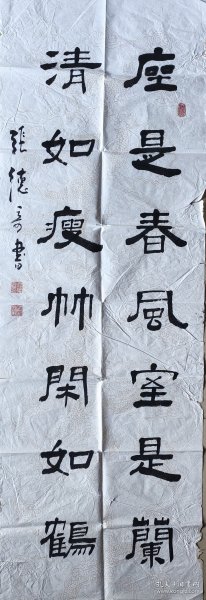 座是春風室是蘭
清如瘦竹閑如鶴
張德奇書